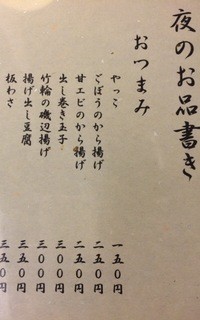 夜のお品書き
おつまみ
やっこ 一五〇円
ごぼうのから揚げ 二五〇円
甘エビのから揚げ 二五〇円
出し巻き玉子 三〇〇円
竹輪の磯辺揚げ 三〇〇円
揚げ出し豆腐 三五〇円
板わさ 三五〇円